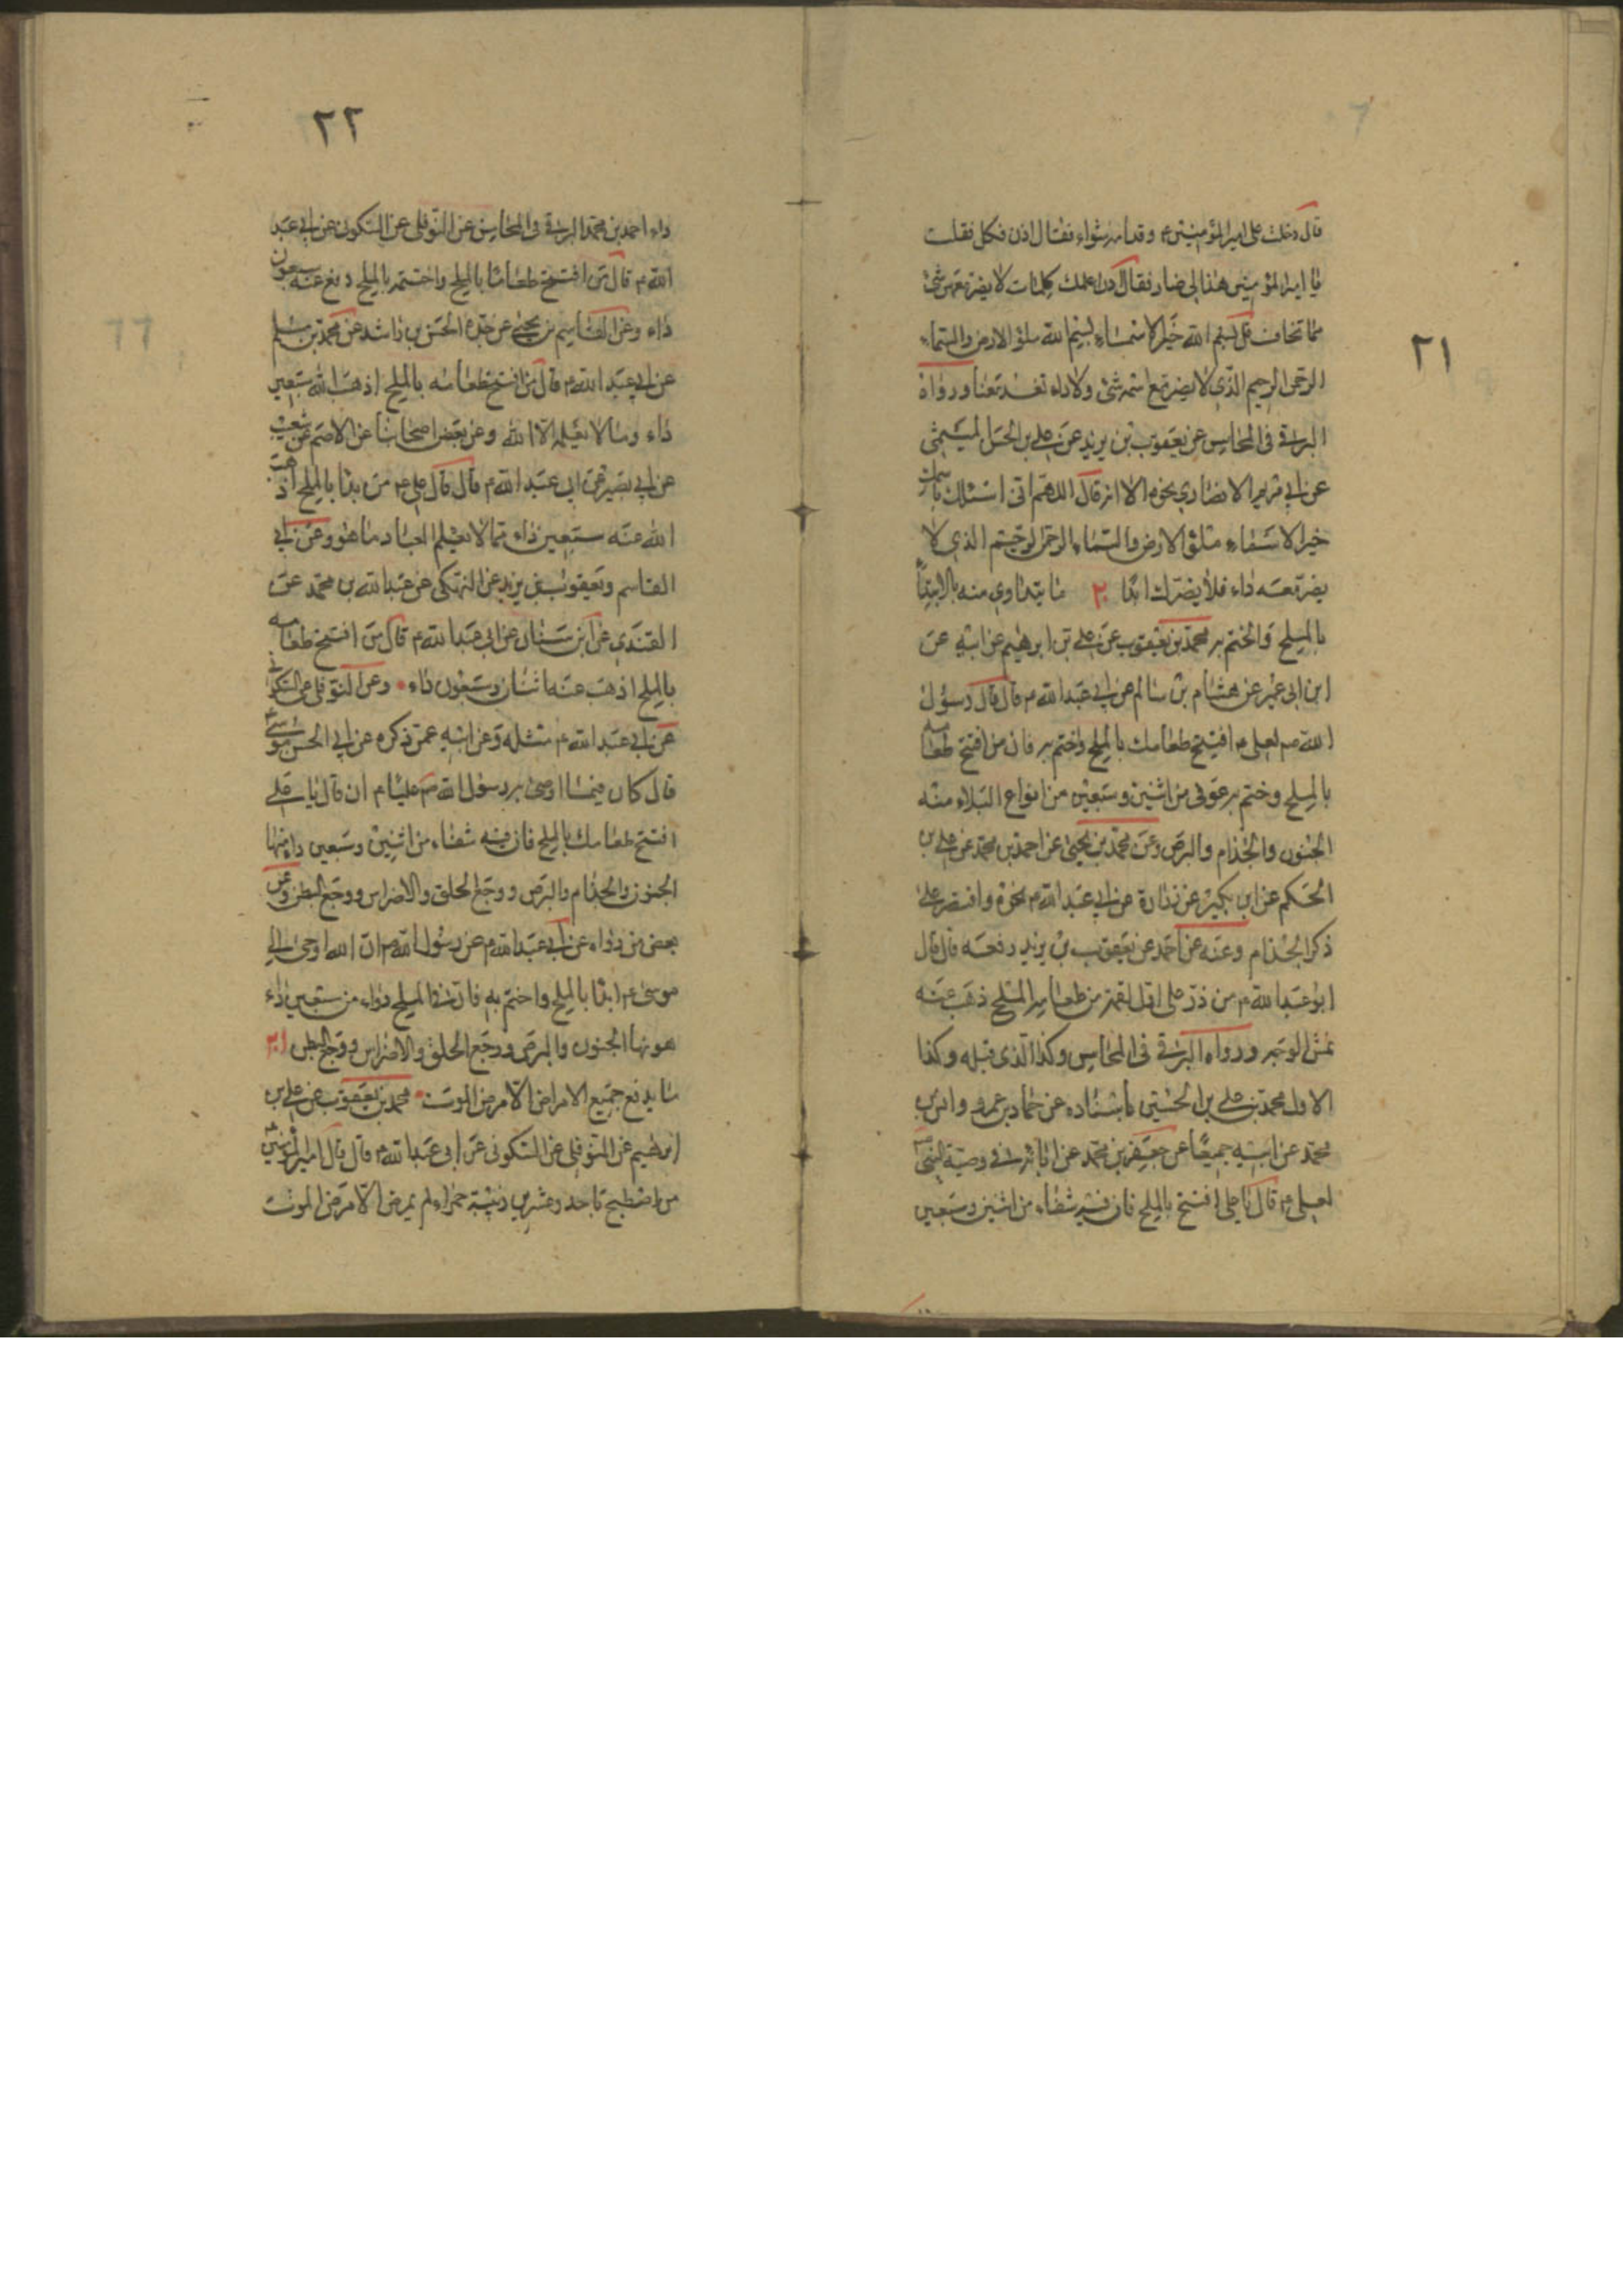 ٢١
قال دخلت على امير المؤمنين ع وقدامه شواء فقال ادن فكل فقلت
يا امير المؤمنين هذا لى ضار فقال ادن اعلمك كلمات لا يضرك معهن شئ
مما تخاف قل بسم الله خير الاسماء بسم الله ملؤ الارض والسماء
الرحمن الرحيم الذى لا يضر مع اسمه شئ ولا داء تغد معنا ورواه
البرقى فى المحاسن عن يعقوب بن يزيد عن على بن الحسن الميثمى
عن ابى مريم الانصارى نحوه الا انه قال اللهم انى اسئلك باسمك
خير الاسماء ملؤ الارض والسماء الرحمن الرحيم الذى لا
يضر معه داء فلا يضرك ابدا ب ما يتداوى منه بالابتداء
بالملح والختم به محمد بن يعقوب عن على بن ابرهيم عن ابيه عن
ابن ابى عمير عن هشام بن سالم عن ابى عبد الله ع قال قال رسول
الله ص لعلى ع افتتح طعامك بالملح واختم به فان من افتتح طعامه
بالملح وختم به عوفى من اثنين وسبعين من انواع البلاء منه
الجنون والجذام والبرص وعن محمد بن يحيى عن احمد بن محمد عن على بن
الحكم عن ابن بكير عن زرارة عن ابى عبد الله ع نحوه واقتصر على
ذكر الجذام وعنه عن احمد عن يعقوب بن يزيد رفعه قال قال
ابو عبد الله ع من ذر على اول لقمة من طعامه الملح ذهب عنه
نمش الوجه ورواه البرقى فى المحاسن وكذا الذى قبله وكذا
الاول محمد بن على بن الحسين باسناده عن حماد بن عمرو وانس بن
محمد عن ابيه جميعا عن جعفر بن محمد عن ابائه فى وصية النبى ص
لعلى ع قال يا على افتتح بالملح فان فيه شفاء من اثنين وسبعين
٢٢
داء احمد بن محمد البرقى فى المحاسن عن النوفلى عن السكونى عن ابى عبد
الله ع قال من افتتح طعاما بالملح واختتمه بالملح دفع عنه سبعون
داء وعن القاسم بن يحيى عن جده الحسن بن راشد عن محمد بن مسلم
عن ابى عبد الله ع قال من افتتح طعامه بالملح اذهب الله سبعين
داء وما لا يعلمه الا الله وعن بعض اصحابنا عن الاصم عن شعيب
عن ابى بصير عن ابى عبد الله ع قال قال على ع من بدا بالملح اذهب
الله عنه سبعين داء مما لا يعلم العباد ما هو وعن ابى
القاسم ويعقوب بن يزيد عن النهيكى عن عبد الله بن محمد عن
القندى عن ابن سنان عن ابى عبد الله ع قال من افتتح طعامه
بالملح اذهب عنه اثنان وسبعون داء وعن النوفلى عن السكونى
عن ابى عبد الله ع مثله وعن ابيه عمن ذكره عن ابى الحسن موسى ع
قال كان فيما اوصى به رسول الله ص عليا م ان قال يا على
افتتح طعامك بالملح فان فيه شفاء من اثنين وسبعين داء منها
الجنون والجذام والبرص ووجع الحلق والاضراس ووجع البطن وعن
بعض من رواه عن ابى عبد الله ع عن رسول الله ص ان الله اوحى الى
موسى ع ابدا بالملح واختم به فان فى الملح دواء من سبعين داء
هونها الجنون والبرص ووجع الحلق والاضراس ووجع البطن
ما يدفع جميع الامراض الا مرض الموت محمد بن يعقوب عن على بن
ابرهيم عن النوفلى عن السكونى عن ابى عبد الله ع قال قال امير المؤمنين ع
من اصطبح باحد وعشرين زبيبة حمراء لم يمرض الا مرض الموت